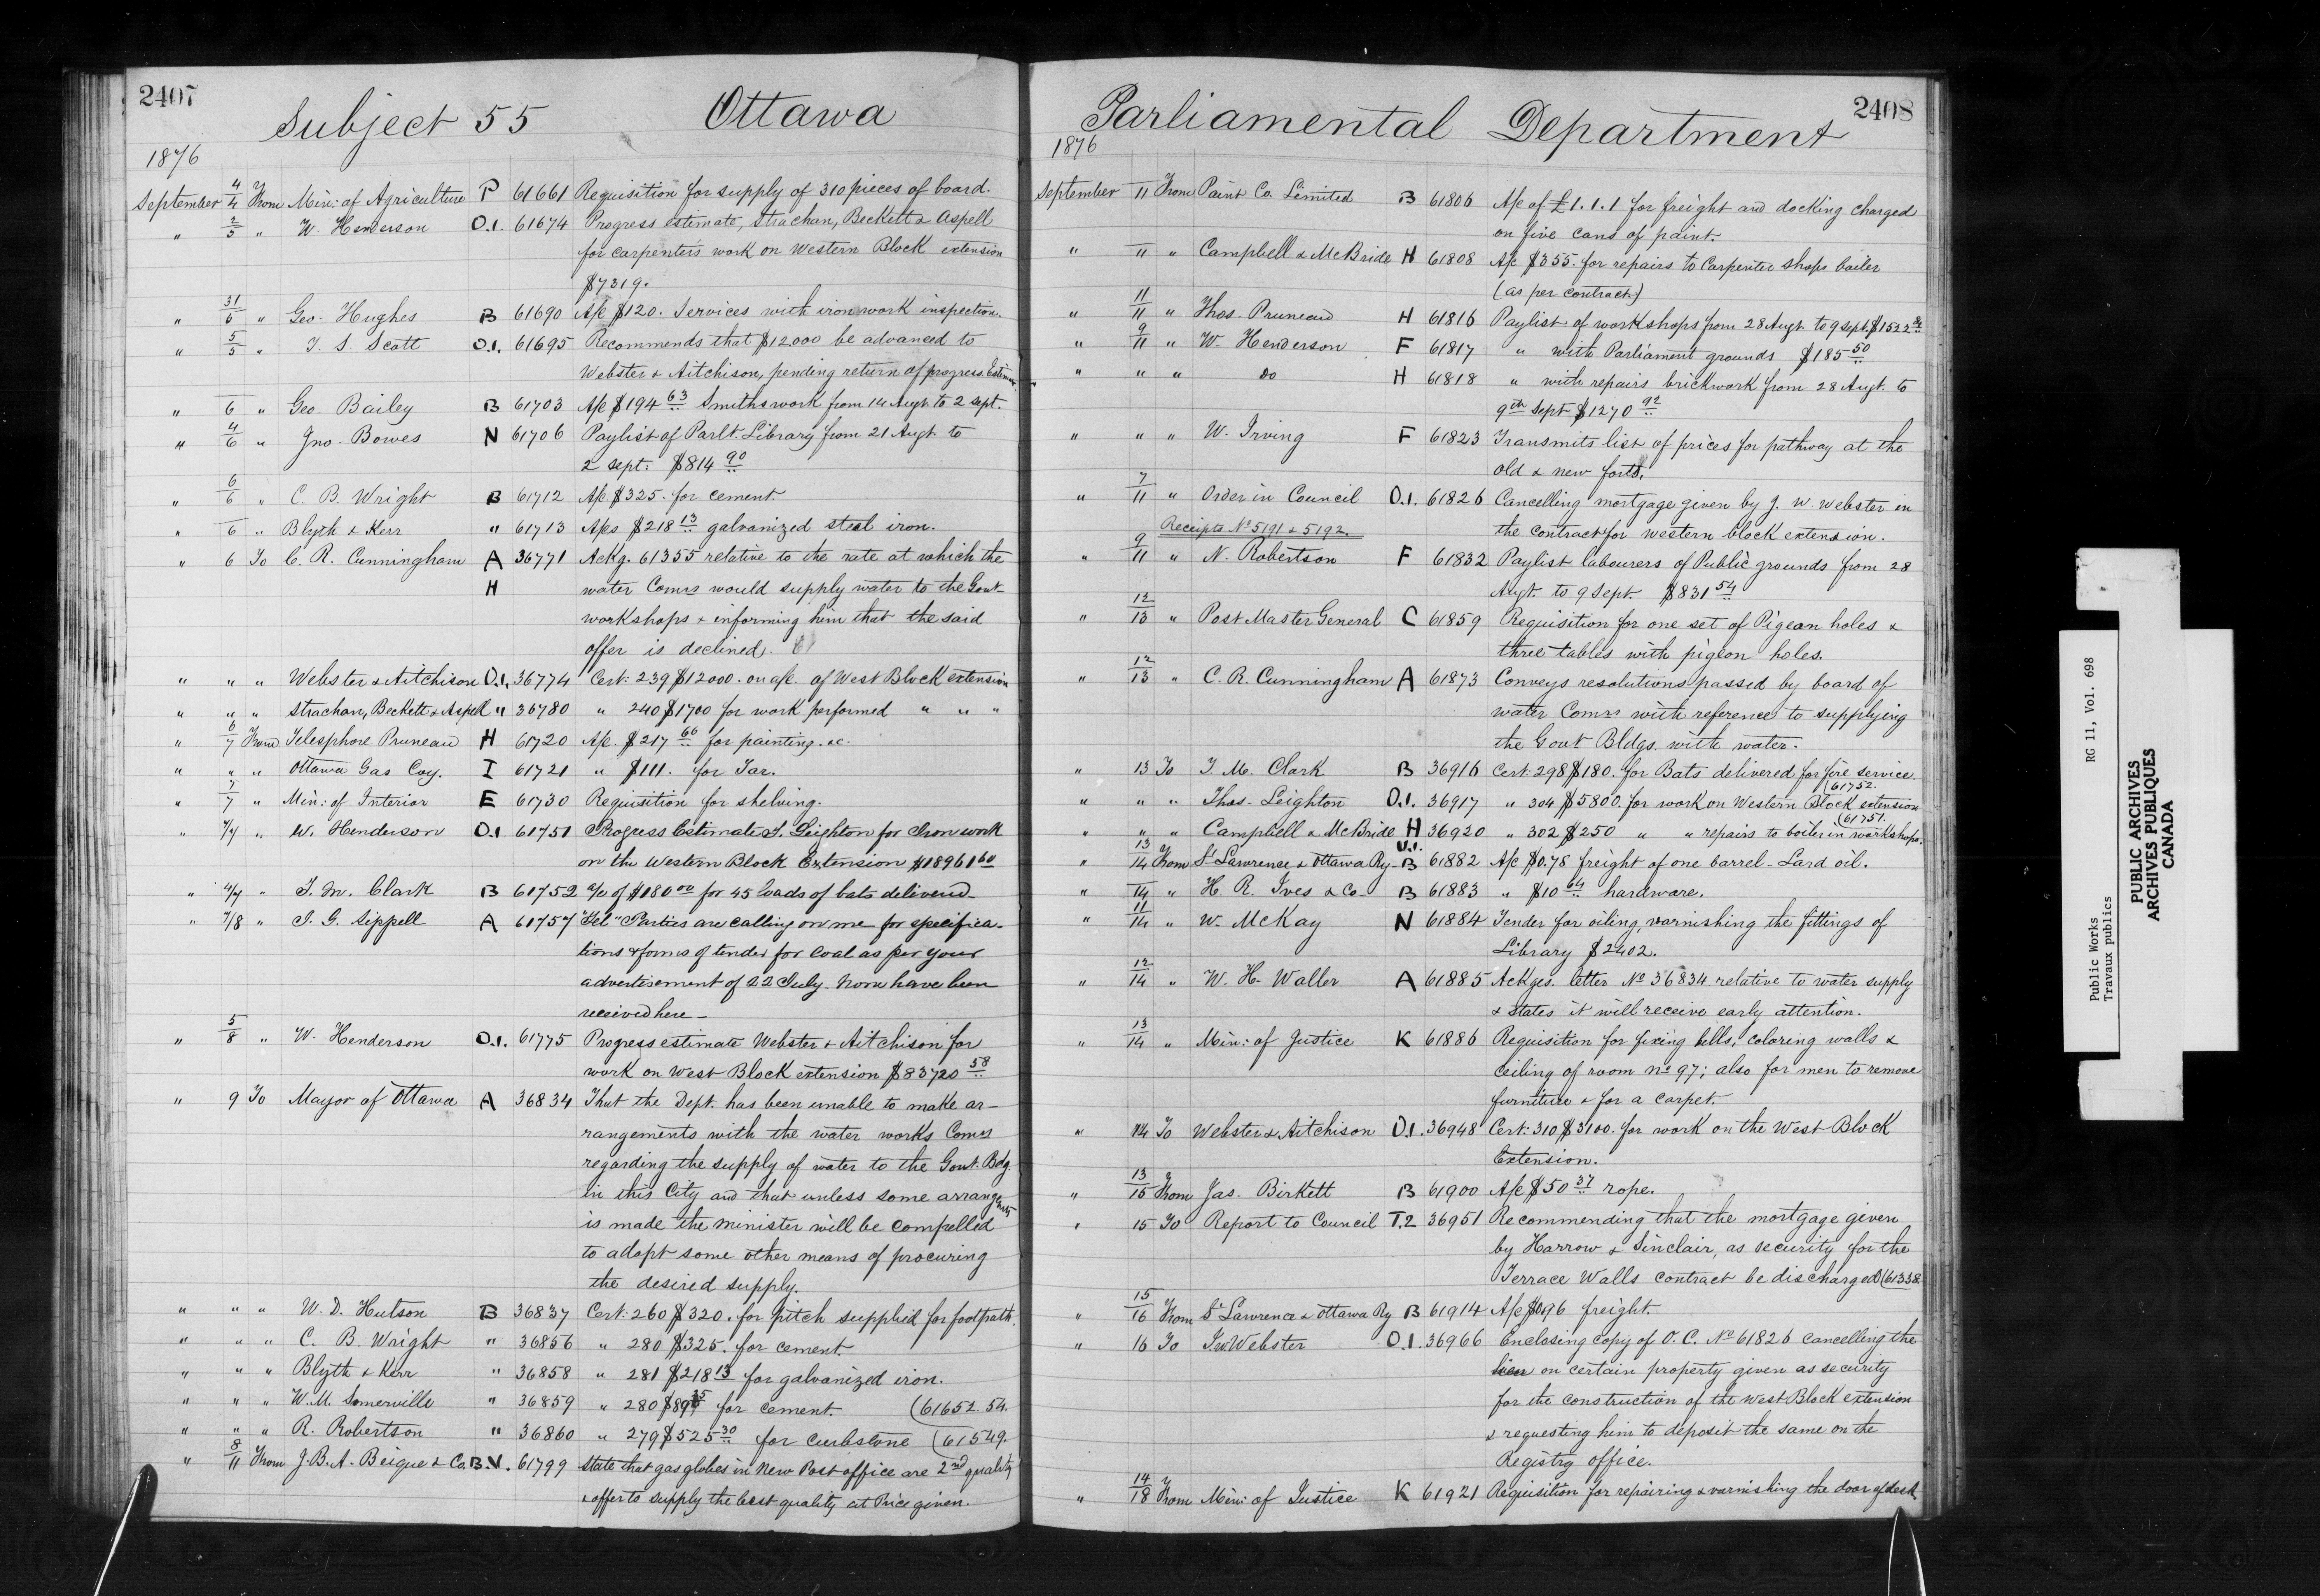 2407
Subject 55 Ottawa
1876
September 4/4 From Min: of Agriculture P 61661 Requisition for supply of 310 pieces of board.
" 2/5 " W. Henderson O.1. 61674 Progress estimate, Strachan, Beckett & Aspell
for carpenters work on Western Block extension
$7319.
" 31/5 " Geo. Hughes B 61690 A/c $120. Services with iron work inspection.
" 5/5 " T. S. Scott O.1. 61695 Recommends that $12000 be advanced to
Webster & Aitchison, pending return of progress Estimate
" 6 " Geo. Bailey B 61703 A/c $194 63 Smiths work from 14 Augt. to 2 Sept.
" 4/6 " Jno. Bowes N 61706 Paylist of Parlt. Library from 21 Augt. to
2 Sept. $814 90
" 6/6 " C. B. Wright B 61712 A/c $325. for cement.
" 6 " Blyth & Kerr " 61713 A/cs $218 13 galvanized steel iron.
" 6 To C. R. Cunningham A 36771 Ackg. 61355 relative to the rate at which the
H water Comrs would supply water to the Govt
workshops & informing him that the said
offer is declined.
" " " Webster & Aitchison O.1. 36774 Cert: 239 $12000. on a/c of West Block extension
" " " Strachan, Beckett & Aspell " 36780 " 240 $1700 for work performed " " "
" 6/7 From Telesphore Pruneau H 61720 A/c. $217 66 for painting &c.
" " " Ottawa Gas Coy. I 61721 " $111. for Tar.
" 7/7 " Min: of Interior E 61730 Requisition for shelving.
" 7/7 " W. Henderson O.1 61751 Progress Estimate T. Leighton for Iron work
on the Western Block Extension $18961 60
" 4/7 " T. M. Clark B 61752 a/c of $180 00 for 45 loads of bats delivered
" 7/8 " T. G. Sippell A 61757 "Tel" Parties are calling on me for specifica-
tions & forms of tender for Coal as per your
advertisement of 22 July. None have been
received here -
" 5/8 " W. Henderson O.1. 61775 Progress estimate Webster & Aitchison for
work on West Block extension $83720 58
" 9 To Mayor of Ottawa A 36834 That the Dept. has been unable to make ar-
rangements with the water works Comrs
regarding the supply of water to the Govt. Bdg.
in this City and that unless some arrangmts
is made the minister will be compelled
to adopt some other means of procuring
the desired supply.
" " " W. D. Hutson B 36837 Cert: 260 $320. for pitch supplied for footpath.
" " " C. B. Wright " 36856 " 280 $325. for cement.
" " " Blyth & Kerr " 36858 " 281 $218 13 for galvanized iron.
" " " W. M. Somerville " 36859 " 280 for cement. (61652.54.
" " " R. Robertson " 36860 " 279 $525 30 for curbstone (61549.
" 8/11 From J. B. A. Beique & Co. B.V. 61799 State that gas globes in New Post office are 2nd quality
& offer to supply the best quality at Price given.
2408
Parliamental Department
1876
September 11 From Paint Co. Limited B 61806 A/c of £1.1.1 for freight and docking charged
on five cans of paint.
" 11 " Campbell & McBride H 61808 A/c $355. for repairs to Carpenter shops boiler
(as per contract)
" 11/11 " Thos. Pruneau H 61816 Paylist of workshops from 28 Augt. to 9 Sept. $1522
" 9/11 " W. Henderson F 61817 " with Parliament grounds $185 50
" " " do H 61818 " with repairs brickwork from 28 Augt. to
9th Sept. $1270 92
" " " W. Irving F 61823 Transmits list of prices for pathway at the
old & new
" 7/11 " Order in Council O.1. 61826 Cancelling mortgage given by J. W. Webster in
Receipts No 5191 & 5192. the contract for western block extension.
" 9/11 " N. Robertson F 61832 Paylist labourers of Public grounds from 28
Augt. to 9 Sept $831 54
" 12/13 " Post Master General C 61859 Requisition for one set of Pigeon holes &
three tables with pigeon holes.
" 12/13 " C. R. Cunningham A 61873 Conveys resolutions passed by board of
water Comrs with reference to supplying
the Govt Bldgs. with water.
" 13 To T. M. Clark B 36916 Cert: 298 $180. for Bats delivered for fire service
(61752.
" " " Thos. Leighton O.1. 36917 " 304 $5800. for work on Western Block extension
(61751.
" " " Campbell & McBride H 36920 " 302 $250 " " repairs to boiler in workshops.
" 13/14 From St Lawrence & Ottawa Ry. V.1. B 61882 A/c $0.78 freight of one barrel Lard oil.
" 14 " H. R. Ives & Co B 61883 " $10 64 hardware.
" 11/14 " W. McKay N 61884 Tender for oiling, varnishing the fittings of
Library $2402.
" 12/14 " W. H. Waller A 61885 Ackges. letter No 36834 relative to water supply
& states it will receive early attention.
" 13/14 " Min: of Justice K 61886 Requisition for fixing bells, coloring walls &
ceiling of room no 97; also for men to remove
furniture & for a carpet.
" 14 To Webster & Aitchison O.1. 36948 Cert: 310 $3100. for work on the West Block
Extension.
" 13/15 From Jas. Birkett B 61900 A/c $50 37 rope.
" 15 To Report to Council T.2 36951 Recommending that the mortgage given
by Harrow & Sinclair, as security for the
Terrace Walls contract be discharged (61338
" 15/16 From St Lawrence & Ottawa Ry B 61914 A/c $0.96 freight.
" 16 To J.W. Webster O.1. 36966 Enclosing copy of O.C. No 61826 cancelling the
lien on certain property given as security
for the construction of the West Block extension
& requesting him to deposit the same on the
Registry office.
" 14/18 From Min: of Justice K 61921 Requisition for repairing & varnishing the door of desk.
Public Works RG 11, Vol. 698
Travaux publics
PUBLIC ARCHIVES
ARCHIVES PUBLIQUES
CANADA